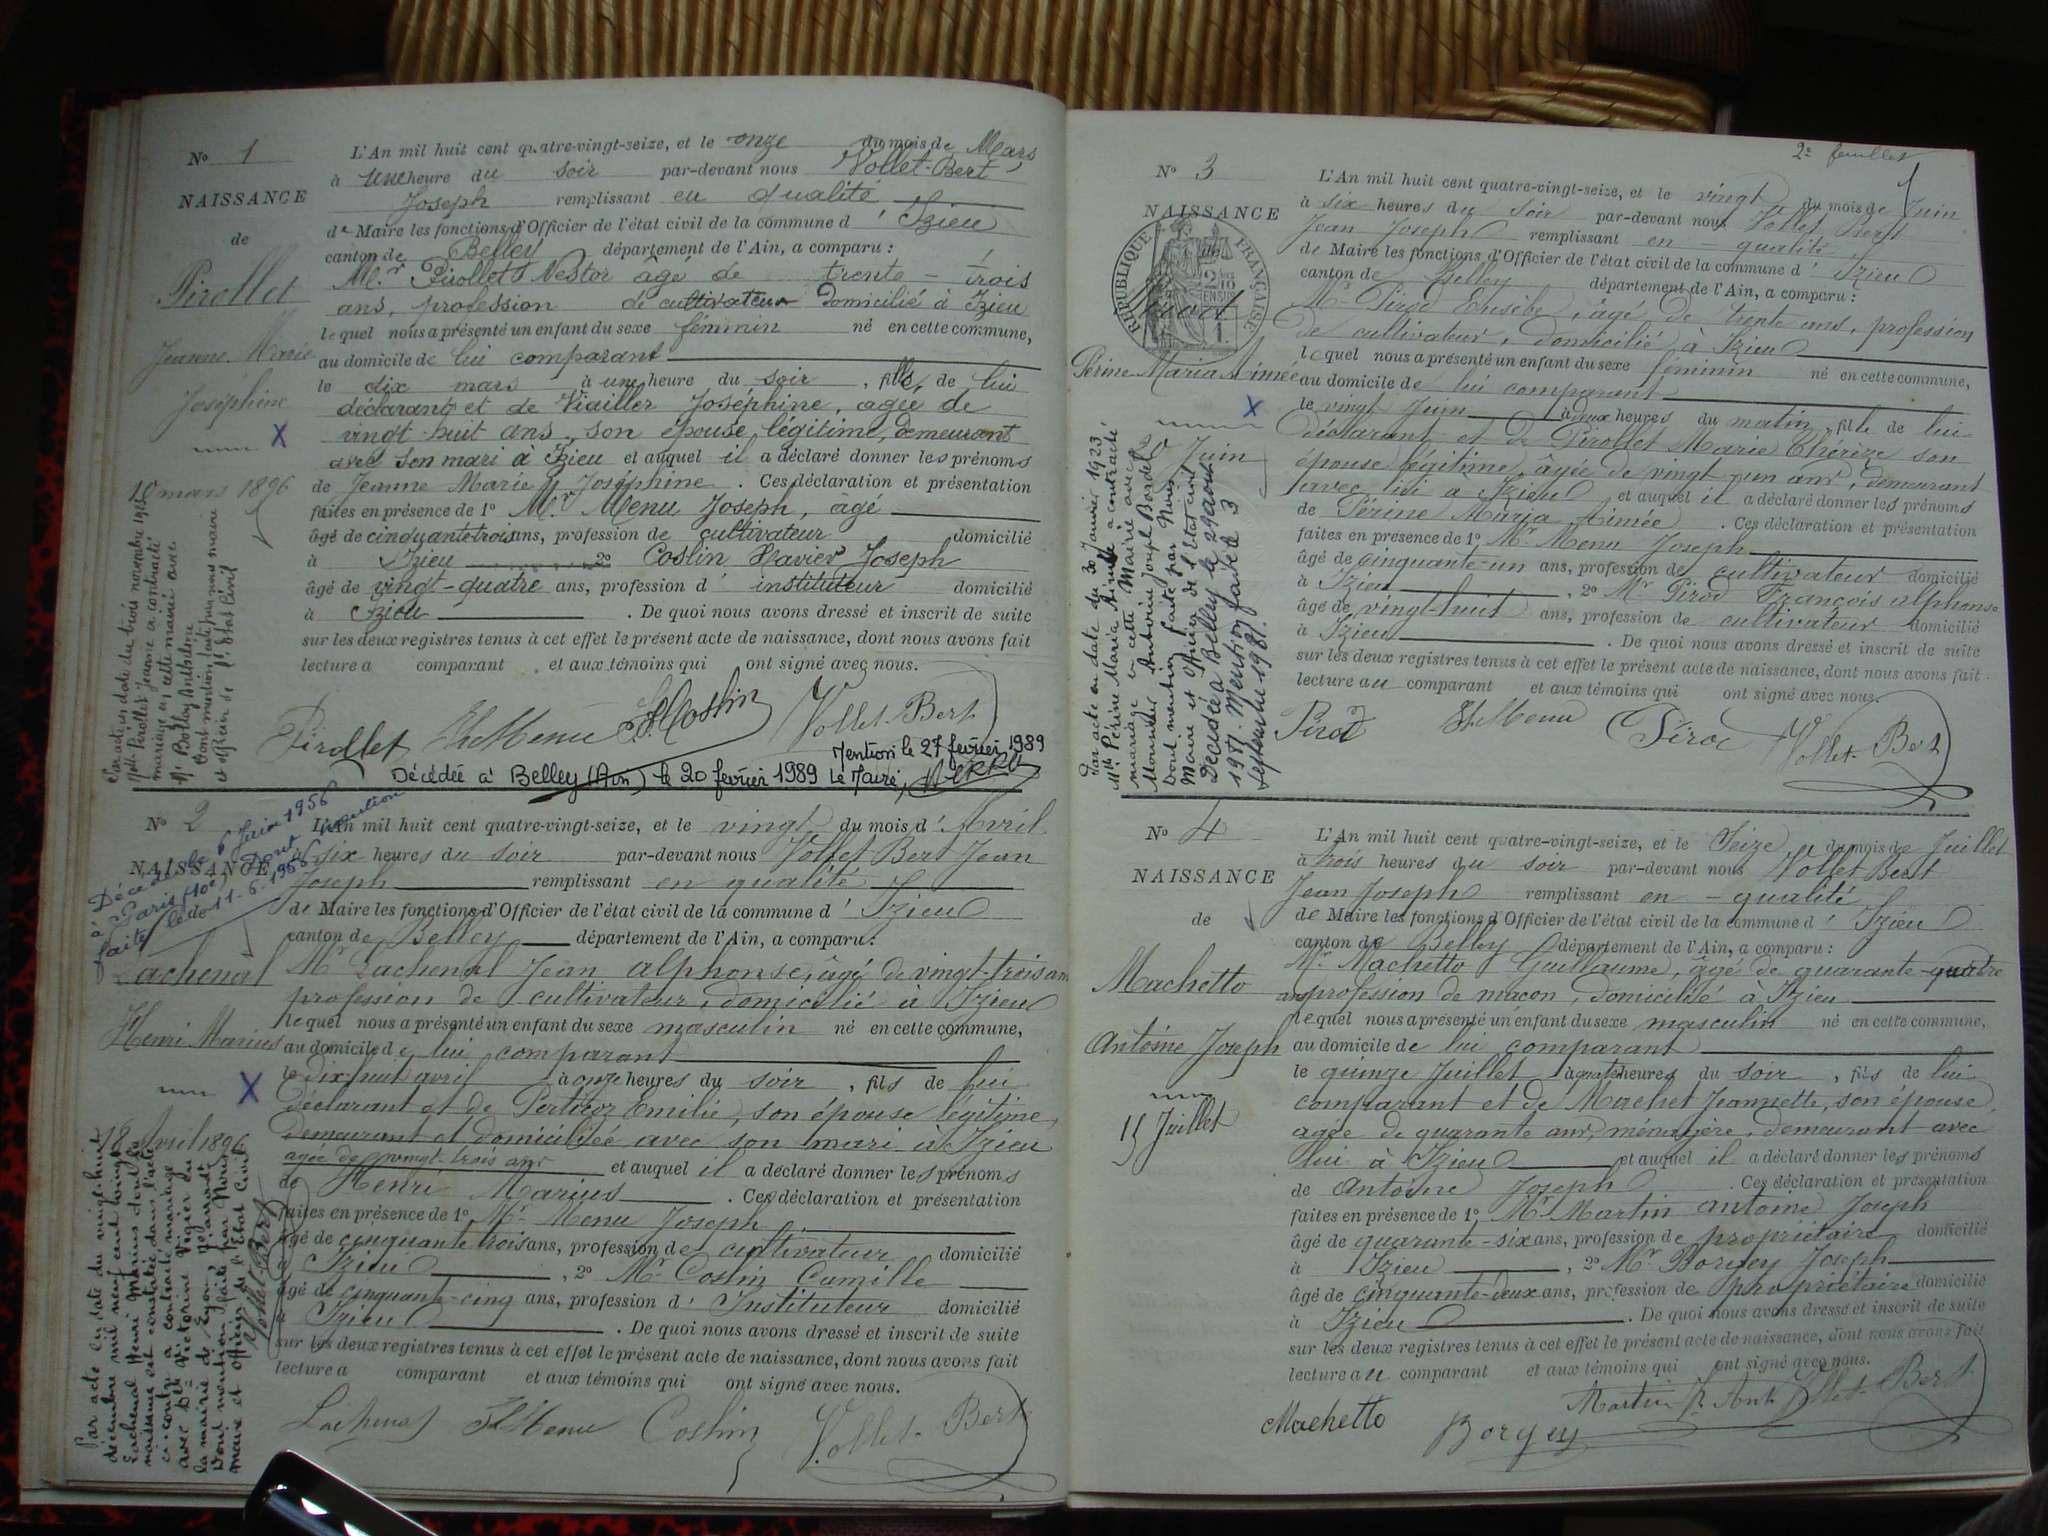 No 1
NAISSANCE
de
Pirollet
Jeanne Marie
Joséphine
10 mars 1896
L'An mil huit cent quatre-vingt-seize, et le onze du mois de Mars
à une heure du soir par-devant nous Vollet-Bert
Joseph remplissant en qualité
de Maire les fonctions d'Officier de l'état civil de la commune d' Izieu
canton de Belley département de l'Ain, a comparu :
Mr. Pirollet Nestor âgé de trente-trois
ans, profession de cultivateur domicilié à Izieu
lequel nous a présenté un enfant du sexe féminin né en cette commune,
au domicile de lui comparant
le dix mars à une heure du soir, fille de lui
déclarant et de Viailler Joséphine, agée de
vingt-huit ans, son épouse légitime, demeurant
avec son mari à Izieu et auquel il a déclaré donner les prénoms
de Jeanne Marie Joséphine. Ces déclaration et présentation
faites en présence de 1o Mr. Menu Joseph, âgé
âgé de cinquante trois ans, profession de cultivateur domicilié
à Izieu 2o Coslin Xavier Joseph
âgé de vingt-quatre ans, profession d' instituteur domicilié
à Izieu. De quoi nous avons dressé et inscrit de suite
sur les deux registres tenus à cet effet le présent acte de naissance, dont nous avons fait
lecture a comparant et aux témoins qui ont signé avec nous.
Pirollet Menu Coslin Vollet-Bert
Mention le 27 février 1989
Décédée à Belley (Ain) le 20 février 1989 Le Maire,
No 2
NAISSANCE
Décédé le 6 Juin 1956
à Paris (10e) Dont mention
faite le 11-6-1956
Lachenal
Henri Marius
18 Avril 1896
L'An mil huit cent quatre-vingt-seize, et le vingt du mois d' Avril
à six heures du soir par-devant nous Vollet Bert Jean
Joseph remplissant en qualité
de Maire les fonctions d'Officier de l'état civil de la commune d' Izieu
canton de Belley département de l'Ain, a comparu :
Mr Lachenal Jean Alphonse, âgé de vingt-trois ans
profession de cultivateur, domicilié à Izieu
lequel nous a présenté un enfant du sexe masculin né en cette commune,
au domicile de lui comparant
le dix huit avril à onze heures du soir, fils de lui
déclarant et de Perticoz Emilie, son épouse légitime,
demeurant et domiciliée avec son mari à Izieu
agée de vingt-trois ans et auquel il a déclaré donner les prénoms
de Henri Marius. Ces déclaration et présentation
faites en présence de 1o Mr. Menu Joseph
âgé de cinquante trois ans, profession de cultivateur domicilié
à Izieu, 2o Mr Coslin Camille
âgé de cinquante-cinq ans, profession d' Instituteur domicilié
à Izieu. De quoi nous avons dressé et inscrit de suite
sur les deux registres tenus à cet effet le présent acte de naissance, dont nous avons fait
lecture a comparant et aux témoins qui ont signé avec nous.
Lachenal Menu Coslin Vollet-Bert
Par acte en date du vingt-huit
décembre mil neuf cent vingt
Lachenal Henri Marius dont la
naissance est constatée dans l'acte
ci-contre a contracté mariage
avec Dlle Victorine Vigier
la mairie de Lyon
Dont mention faite par Nous
maire et officier de l'Etat Civil
Vollet Bert
2e feuillet
No 3
NAISSANCE
de
RÉPUBLIQUE FRANÇAISE
Pirod
Périne Maria Aimée
20 Juin
L'An mil huit cent quatre-vingt-seize, et le vingt du mois de Juin
à six heures du soir par-devant nous Vollet Bert
Jean Joseph remplissant en qualité
de Maire les fonctions d'Officier de l'état civil de la commune d' Izieu
canton de Belley département de l'Ain, a comparu :
Mr Pirod Eusèbe, âgé de trente ans, profession
de cultivateur, domicilié à Izieu
lequel nous a présenté un enfant du sexe féminin né en cette commune,
au domicile de lui comparant
le vingt Juin à deux heures du matin, fille de lui
déclarant et de Pirollet Marie Thérèze son
épouse légitime, âgée de vingt un ans, demeurant
avec lui à Izieu et auquel il a déclaré donner les prénoms
de Périne Maria Aimée. Ces déclaration et présentation
faites en présence de 1o Mr Menu Joseph
âgé de cinquante-un ans, profession de cultivateur domicilié
à Izieu, 2o Mr Pirod François Alphonse
âgé de vingt-huit ans, profession de cultivateur domicilié
à Izieu. De quoi nous avons dressé et inscrit de suite
sur les deux registres tenus à cet effet le présent acte de naissance, dont nous avons fait
lecture au comparant et aux témoins qui ont signé avec nous.
Pirod Menu Pirod Vollet-Bert
Par acte en date du 30 Janvier 1923
Mlle Périne Maria Aimée a contracté
mariage en cette Mairie avec
Antoine Joseph
Dont mention faite par Nous
Maire et officier de l'état civil
Décédée à Belley le 29 août
1987. Mention faite le 3
septembre 1987.
No 4
NAISSANCE
de
Machetto
Antoine Joseph
15 Juillet
L'An mil huit cent quatre-vingt-seize, et le Seize du mois de Juillet
à trois heures du soir par-devant nous Vollet Bert
Jean Joseph remplissant en qualité
de Maire les fonctions d'Officier de l'état civil de la commune d' Izieu
canton de Belley département de l'Ain, a comparu :
Mr. Machetto Guillaume, âgé de quarante-quatre
ans profession de maçon, domicilié à Izieu
lequel nous a présenté un enfant du sexe masculin né en cette commune,
au domicile de lui comparant
le quinze Juillet à quatre heures du soir, fils de lui
comparant et de Machet Jeannette, son épouse,
agée de quarante ans, ménagère, demeurant avec
lui à Izieu et auquel il a déclaré donner les prénoms
de Antoine Joseph. Ces déclaration et présentation
faites en présence de 1o Mr Martin Antoine Joseph
âgé de quarante-six ans, profession de propriétaire domicilié
à Izieu, 2o Mr Borgey Joseph
âgé de cinquante-deux ans, profession de propriétaire domicilié
à Izieu. De quoi nous avons dressé et inscrit de suite
sur les deux registres tenus à cet effet le présent acte de naissance, dont nous avons fait
lecture au comparant et aux témoins qui ont signé avec nous.
Machetto Borgey Martin Vollet-Bert